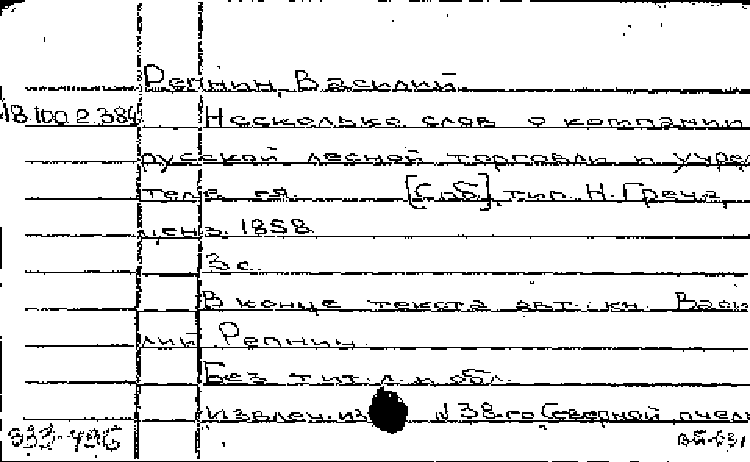 Репнин, Василий.
18.100.2.384 Несколько слов о компании
русской лесной торговли и учре
теле ея. [Спб], тип. Н. Греча,
ценз. 1858.
3 с.
В конце текста авт.: кн. Васи
лий Репнин
Без тит. л. и обл.
Извлеч. из №38-го Северной пчел
933-496